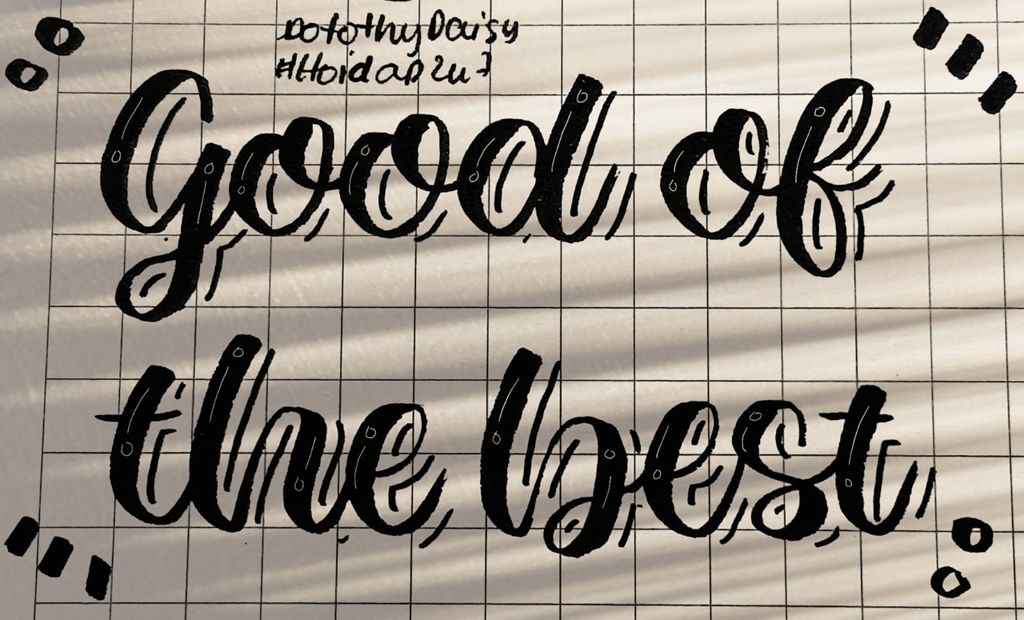 DotothyDaisy
#Hoidap247
Good of
the best